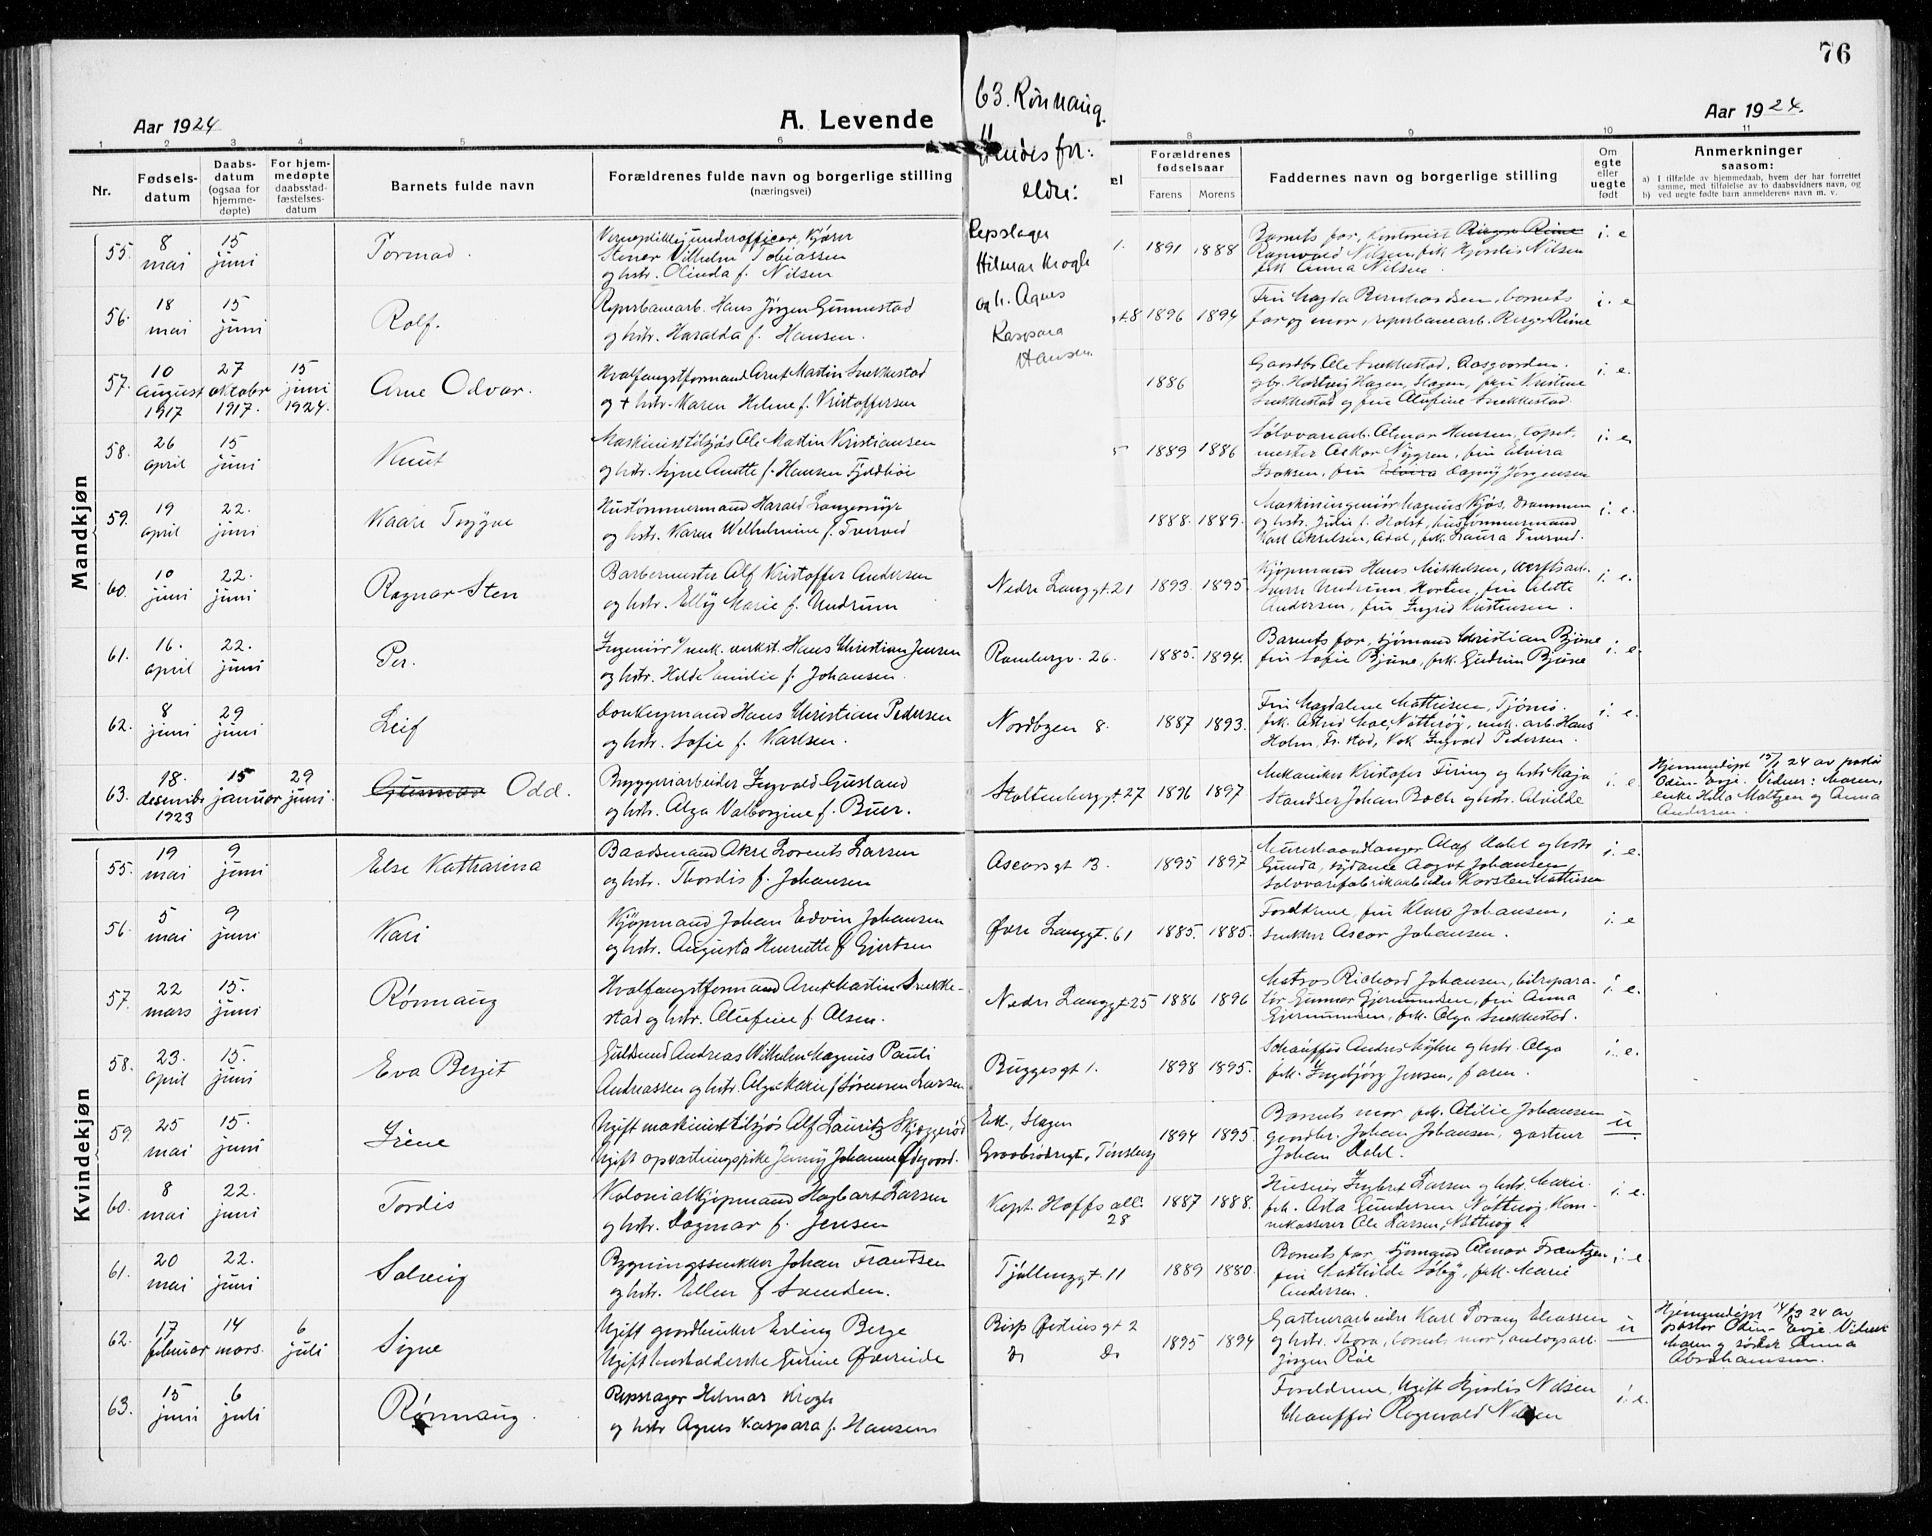 76
Aar 1924
A. Levende
Aar 1924.
1 2 3 4 5 6 8 9 10 11
Nr.
Fødsels-
datum
Daabs-
datum
(ogsaa for
hjemme-
døpte)
For hjem-
medøpte
daabsstad-
fæstelses-
datum
Barnets fulde navn
Forældrenes fulde navn og borgerlige stilling
(næringsvei)
Forældrenes
fødselsaar
Farens Morens
Faddernes navn og borgerlige stilling
Om
egte
eller
uegte
født
Anmerkninger
saasom:
a) I tilfælde av hjemmedaab, hvem der har forrettet
samme, med tilføielse av to daabsvidners navn, og
b) ved uegte fødte barn anmelderens navn m. v.
63. Rønnaug.
Hendes for:
eldre:
Repslager
Hilmar Krogh
og h. Agnes
Kaspara
Hansen
Mandkjøn
55. 8 mai 15 juni Tormod.
Vernepliktig underofficer, Kjører
Stener Vilhelm Tobiassen
og hstr. Olinda f. Nilsen
1891 1888
Barnets far, kontorist Birger Riine
Ragnvald Nilsen, frk Hjørdis Nilsen
frk Anna Nilsen.
i. e
56. 18 mai 15 juni Rolf.
Reperbanearb. Hans Jørgen Gunnestad
og hstr. Haralda f. Hansen.
1896 1894
Fru Magda Bernhardsen, barnets
far og mor, reperbanearb. Birger Riine
i. e
57. 10 august 1917 27 oktober 1917. 15 juni 1924. Arne Odvar.
Hvalfangstformand Arnt Martin Snekkestad
og + hstr. Maren Helene f. Kristoffersen
1886
Gaardbr. Ole Snekkestad, Aasgaarden.
gbr. Hartvig Hagen, Slagen, fru Kristine
Snekkestad og fru Alufine Snekkestad.
i. e.
58. 26 april 15 juni Knut
Maskinist tilsjøs Ole Martin Kristiansen
og hstr. Signe Anette f. Hansen Fjeldbøe
1889 1886
Sølvvarearb. Olmar Hansen, tapet-
mester Oskar Nygren, fru Elvira
Isaksen, fru Elvira Dagny Jørgensen
i. e.
59. 19 april 22. juni Kaare Trygve
Hustømmermand Harald
og hstr. Karen Welhelmine f. Tverved
1888. 1889.
Maskiningeniør Magnus Kjøs, Drammen
og hstr. Julie f. Holst, hustømmermand
Karl Akselsen, Adal, frk. Laura Tverved.
i. e.
60. 10 juni 22. juni Ragnar Sten
Barbermester Alf Kristoffer Andersen
og hstr. Elly Marie f. Undrum
Nedre Langgt. 21 1893. 1895.
Kjøpmand Hans Mikkelsen, verftsarb.
Sverre Undrum, Horten, fru Alette
Andersen, fru Ingrid Kristensen.
i. e.
61. 16. april 22. juni Per.
Ingeniør v/ mek. verkst. Hans Christian Jensen
og hstr. Hilda Emilie f. Johansen.
Rambergv. 26. 1885. 1894.
Barnets far, sjømand Christian Bjune
fru Sofie Bjune, frk. Gudrun Bjune
i. e.
62. 8 juni 29 juni Leif
Donkeymand Hans Christian Pedersen
og hstr. Sofie f. Karlsen.
Nordbyen 8. 1887 1893.
Fru Magdalene Mathisen, Tjømø.
frk. Astrid Moe, Nøtterøy, mek. arb. Hans
Holm, Fr.stad, Kok Ingvald Pedersen.
i. e.
63. 18. desember 1923 15 januar 29 juni. Gunnar Odd.
Bryggeriarbeider Ingvald Gusland
og hstr. Olga Valborgine f. Buer.
Stoltenberggt. 27 1896 1897
Mekaniker Kristofer Firing og hstr. Maja
Stundser Johan Bach og hstr. Alvilde
i. e
Hjemmedøpt 15/1 24 av pastor
Odin-Enge. Vidner: Moren,
enke Hilda Maltzen og Anna
Andersen.
Kvindekjøn
55. 19 mai 9 juni Else Katharina
Baadsmand Aksel Lorents Larsen
og hstr. Thordis f. Johansen
Ascarsgt 13. 1895 1897
Murerhaandlanger Olaf Dahl og hstr
Gunda, sydame Aagot Johansen,
sølvvarefabrikarbeider Karsten Mathisen
i. e.
56. 5 mai 9 juni Kari
Kjøpmand Johan Edvin Johansen
og hstr. Augusta Henriette f. Gjertsen
Øvre Langgt. 61 1885. 1885.
Foreldrene, fru Klara Johansen,
snekker Ascar Johansen.
i. e
57. 22 mars 15. juni Rønnaug
Hvalfangstformand Arnt Martin Snekke-
stad og hstr. Alufine f. Olsen.
Nedre Langgt. 25 1886 1896
Matros Richard Johansen, bilrepara-
tør Gunnar Gjermundsen, fru Anna
Gjermundsen, frk. Olga Snekkestad.
i. e.
58. 23. april 15. juni Eva Bergit
Guldsmed Andreas Wilhelm Magnus Pauli
Andreassen og hstr. Olga Marie f. Sørensen Larsen
Buggesgt 1. 1898 1895.
Schauffør Anders Myhre og hstr. Olga
frk. Ingebjørg Jensen, faren.
i. e.
59. 25 mai 15. juni Iréne
Ugift maskinist tilsjøs Alf Lauritz Skjeggerød
Ugift opvartningspike Jenny Johanne Ødegaard.
Ek, Slagen
Graabrødregt, Tønsberg
1894 1895.
Barnets mor frk. Otilie Johansen
gaardbr. Johan Johansen, gartner
Johan Dahl.
u
60. 8 mai 22. juni Tordis
Kolonialkjøpmand Hagbart Larsen
og hstr. Dagmar f. Jensen
Kapt. Hoffs allé 28 1887 1888.
Huseier Ingbret Larsen og hstr. Marie.
frk. Asta Gundersen Nøtterøy. Kom-
munekasserer Ole Larsen, Nøtterøy
i. e.
61. 20 mai 22. juni Solveig
Bygningssnekker Johan Frantsen
og hstr. Ellen f. Svendsen.
Tjøllinggt. 11 1889 1880.
Barnets far, sjømand Olmar Frantzen
fru Mathilde Søby, frk. Marie
Andersen.
i. e.
62. 17 februar 14 mars. 6 juli Signe
Ugift gaardbruker Erling Berge
Ugift husholderske Gurine Øvereide
Bisp Øisteinsgt 2
Do Do
1895 1894
Gartnerarbeider Karl Torang Eliassen
og hstr. Thora, barnets mor, anlægsarb.
Jørgen Røe
u
Hjemmedøpt 14/3 24 av
pastor Odin-Enge. Vidner
Moren og søster Anna
Abrahamsen.
63. 15 juni 6 juli Rønnaug.
Repslager Helmar Krogh
og hstr Agnes Kaspara f. Hansen
Foreldrene, Ugift Hjørdis Nilsen
Chauffør Ragnvald Nilsen
i. e.